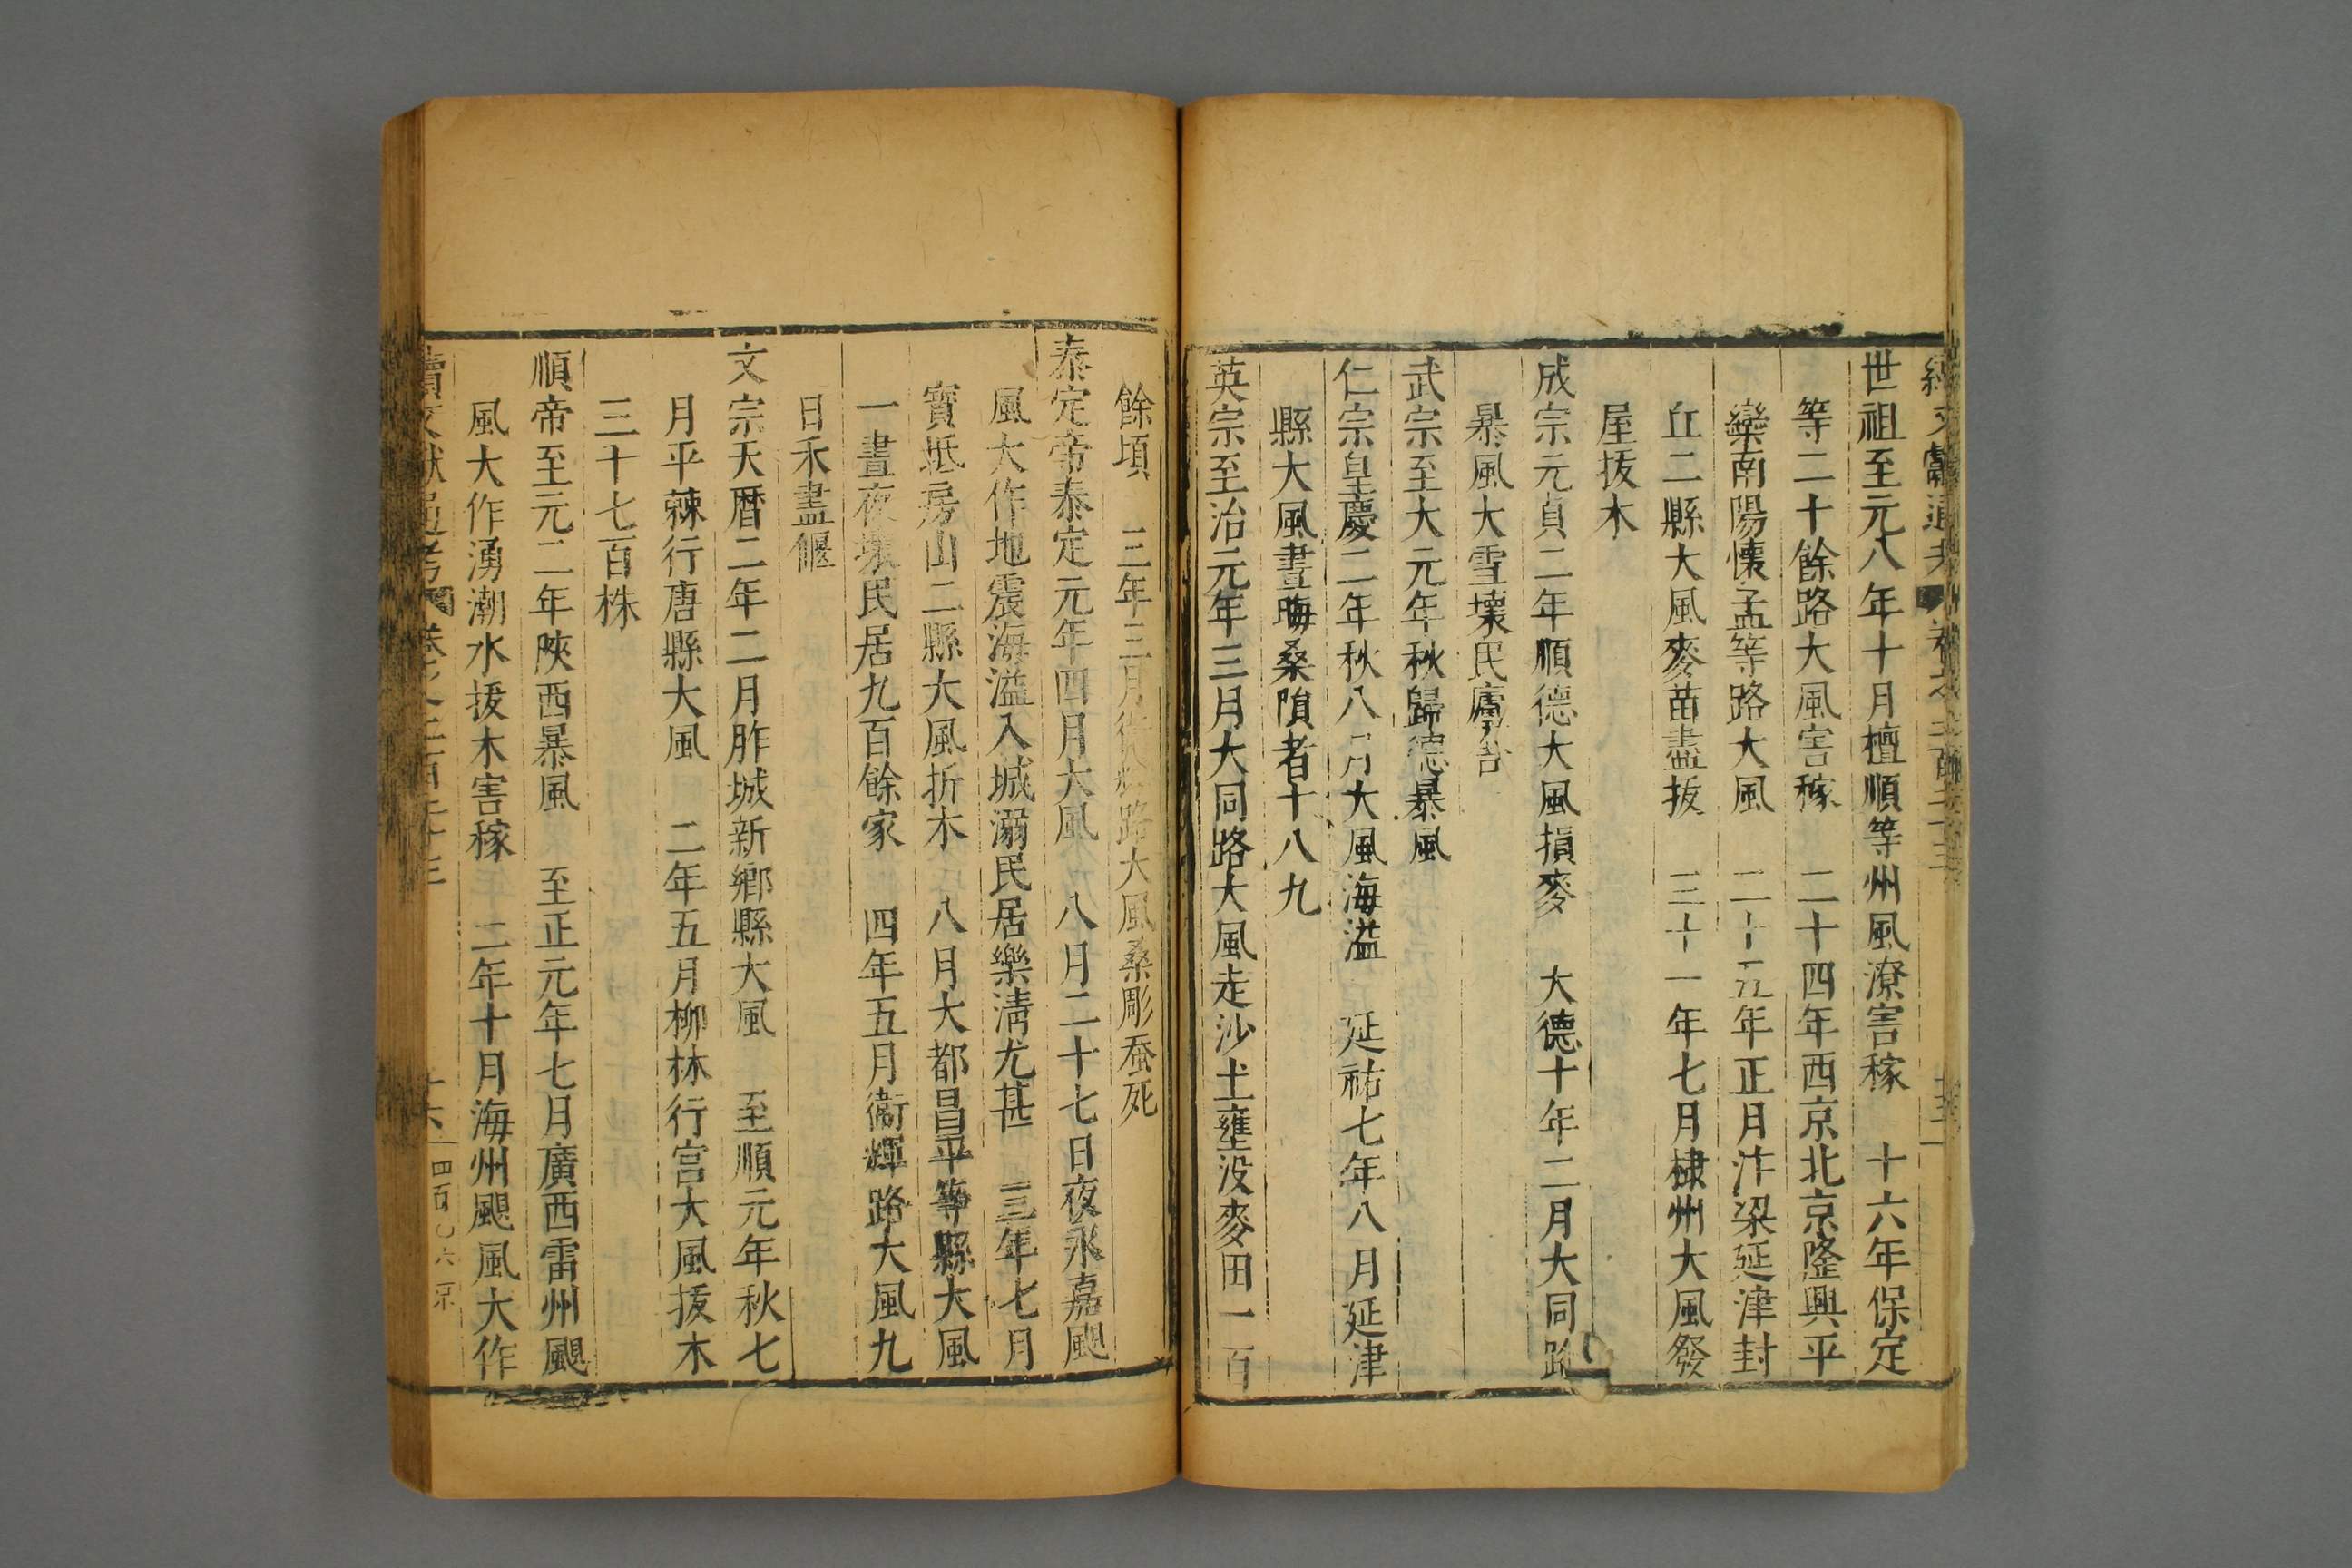 世祖至元八年十月檀順等州風潦害稼　十六年保定
等二十餘路大風害稼　二十四年西京北京隆興平
欒南陽懷孟等路大風　二十五年正月汴梁延津封
丘二縣大風麥苗盡拔　三十一年七月棣州大風發
屋拔木
成宗元貞二年順德大風損麥　大德十年二月大同路
暴風大雪壞民廬舍
武宗至大元年秋歸德暴風
仁宗皇慶二年秋八月大風海溢　延祐七年八月延津
縣大風晝晦桑隕者十八九
英宗至治元年三月大同路大風走沙土壅没麥田一百
餘頃　三年三月衛輝路大風桑彫蚕死
泰定帝泰定元年四月大風　八月二十七日夜永嘉颶
風大作地震海溢入城溺民居樂清尤甚　三年七月
寳坻房山二縣大風折木　八月大都昌平等縣大風
一晝夜壞民居九百餘家　四年五月衞輝路大風九
日禾盡偃
文宗天曆二年二月胙城新鄉縣大風　至順元年秋七
月平棘行唐縣大風　二年五月柳林行宮大風拔木
三十七百株
順帝至元二年陜西暴風　至正元年七月廣西雷州颶
風大作湧潮水拔木害稼　二年十月海州颶風大作
續文獻通考　卷之二百二十三　十六　四百〇六